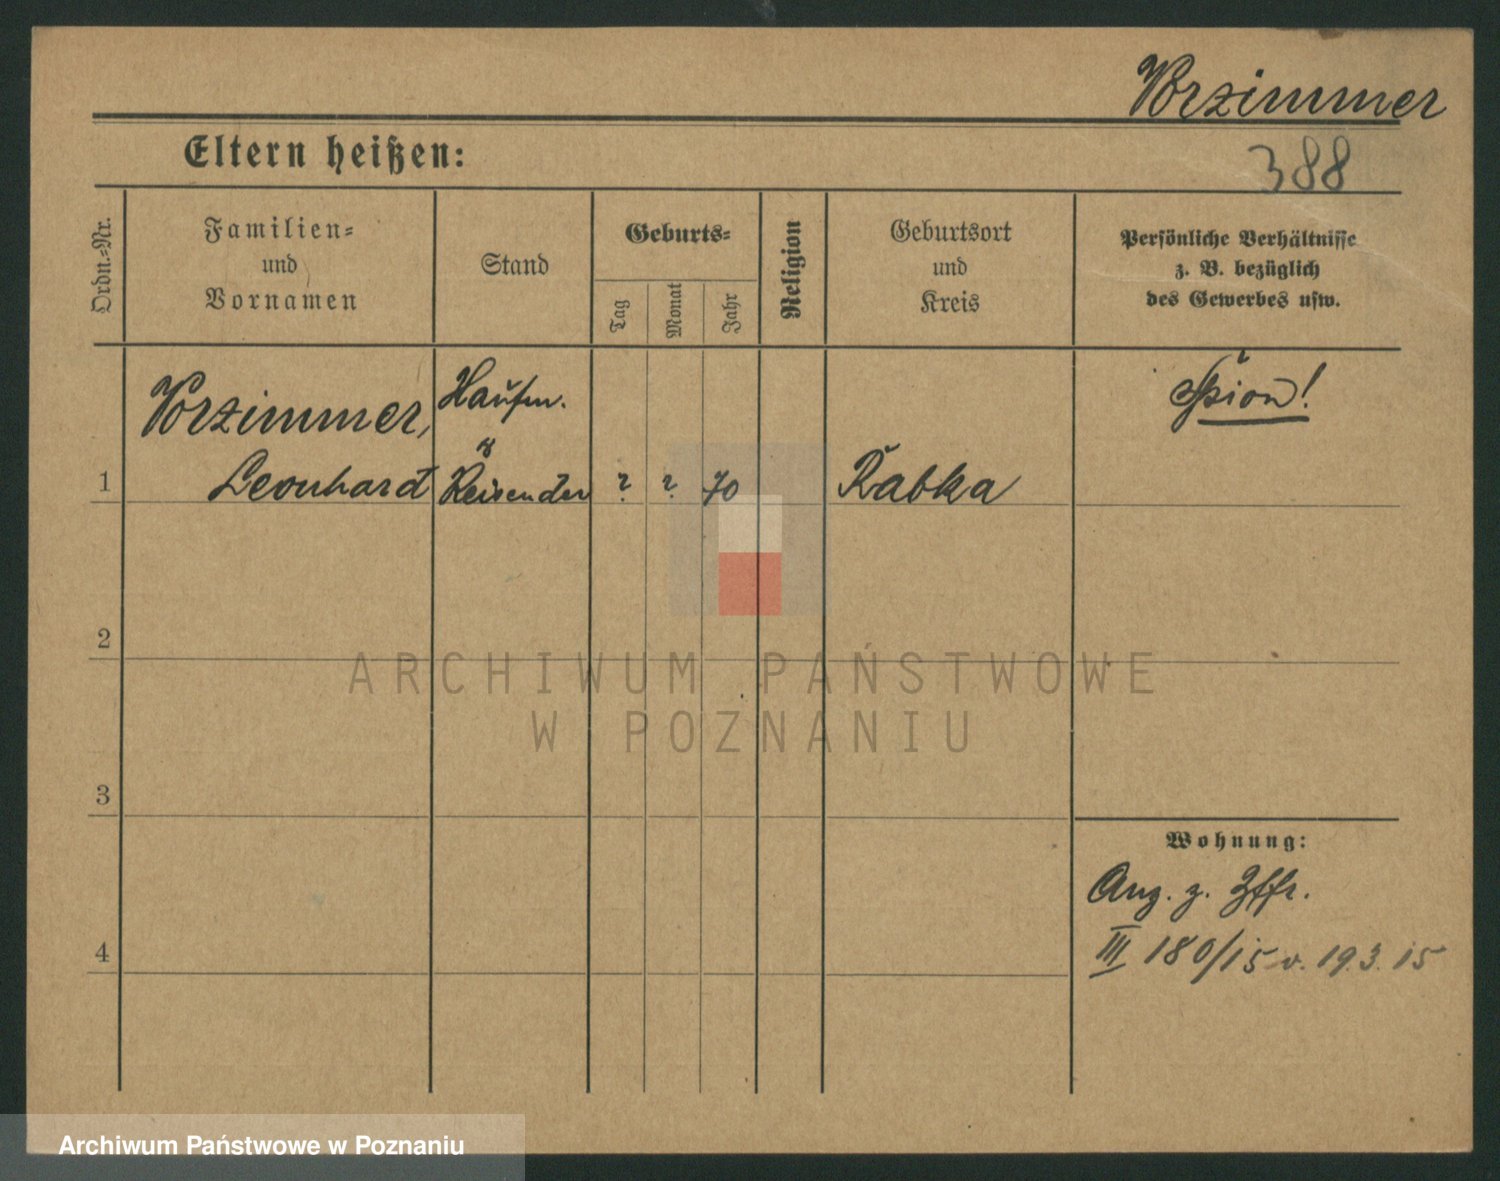 Vorzimmer
388
Eltern heißen:
Ordn.-Nr.
Familien-
und
Vornamen
Stand
Geburts-
Tag
Monat
Jahr
Religion
Geburtsort
und
Kreis
Persönliche Verhältnisse
z. B. bezüglich
des Gewerbes usw.
Vorzimmer,
Leonhard
Reisender
? ? 70
Rabka
Spion!
1
2
ARCHIWUM PAŃSTWOWE
W POZNANIU
3
Wohnung:
Anz. z.
III 180/15 v. 19.3.15
4
Archiwum Państwowe w Poznaniu